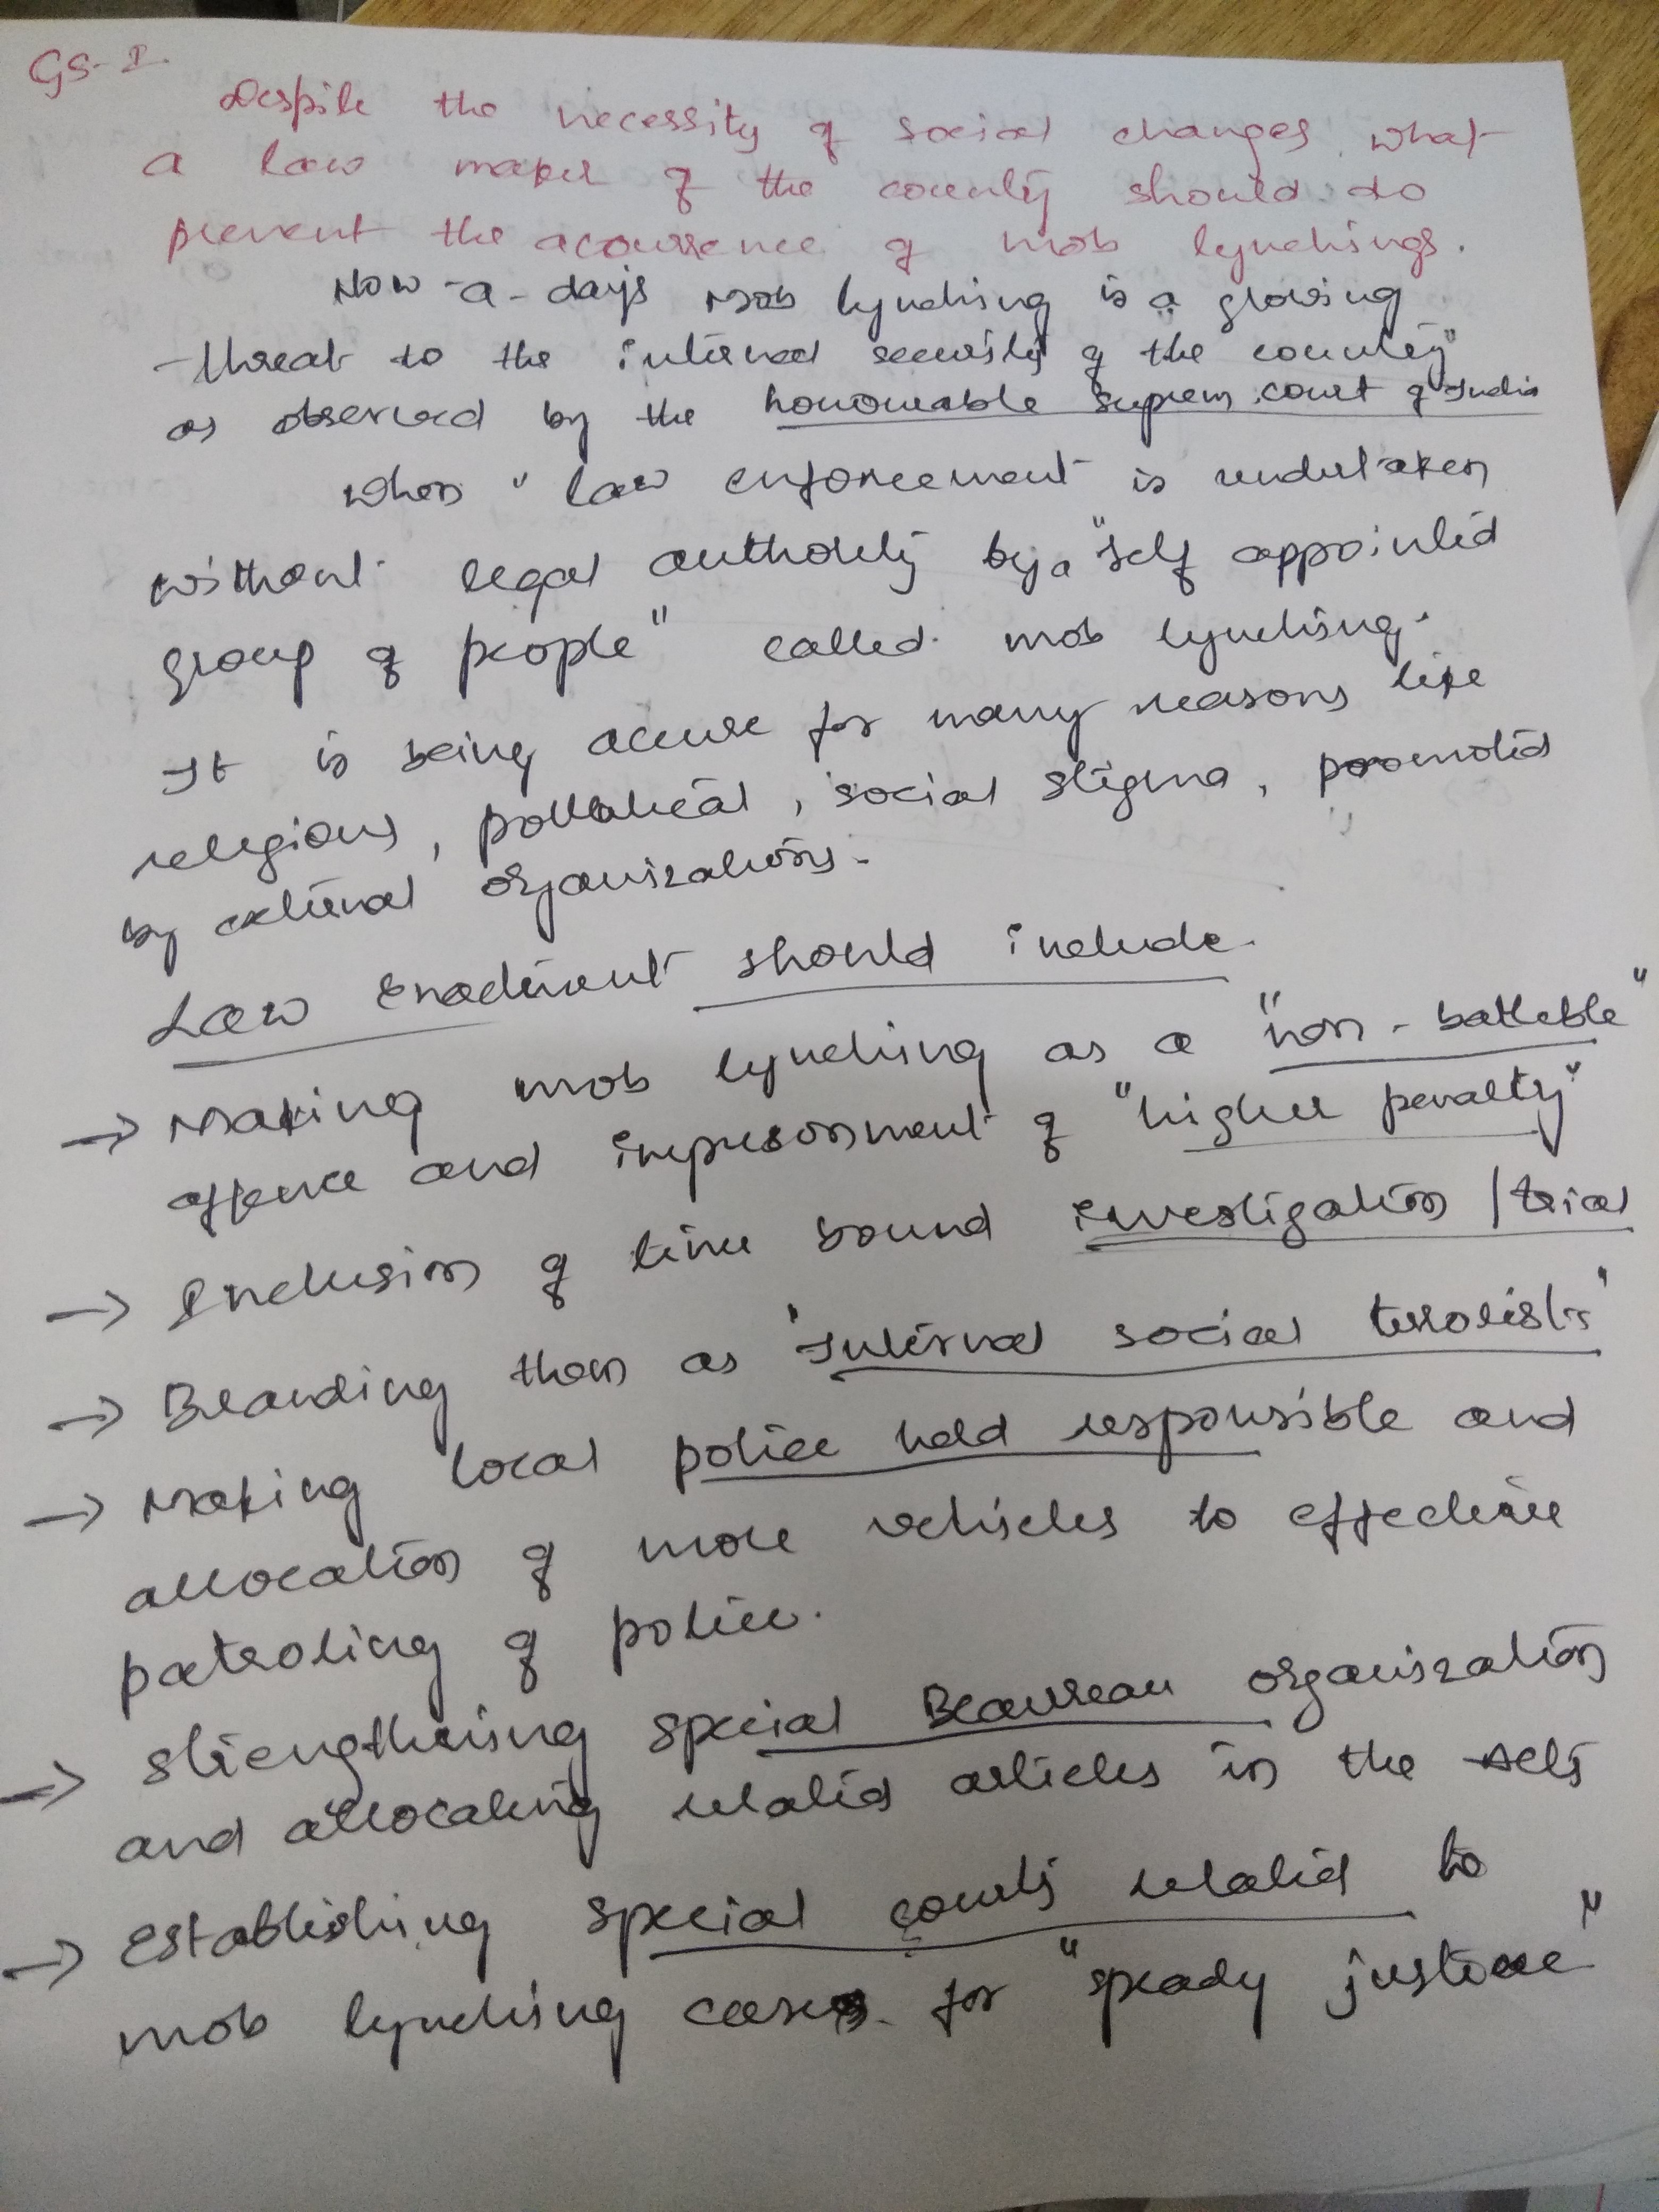 GS-I
Despite the necessity of social changes what
a law maker of the country should do
prevent the acourrence of mob lynchings.
Now-a-days mob lynching is a growing
threat to the internal security of the country"
as observed by the honoureable suprem court of India
When "law enforcement is undertaken
without legal authority by a "self appointed
group of people" called mob lynching.
It is being accure for many reasons like
religious, political, social stigma, promoted
by external organizations.
Law Enactment should include
→ Making mob lynching as a "non-bailable"
offence and imprisonment of "higher penalty"
→ Inclusion of time bound investigation / trial
→ Branding them as 'Internal social terrorists'
→ Making local police held responsible and
allocation of more vehicles to effective
patroling of police.
→ Strengthening special Beaureau organization
and allocating related articles in the Acts
→ Establishing special courts related to
mob lynching cases for "speady justice"